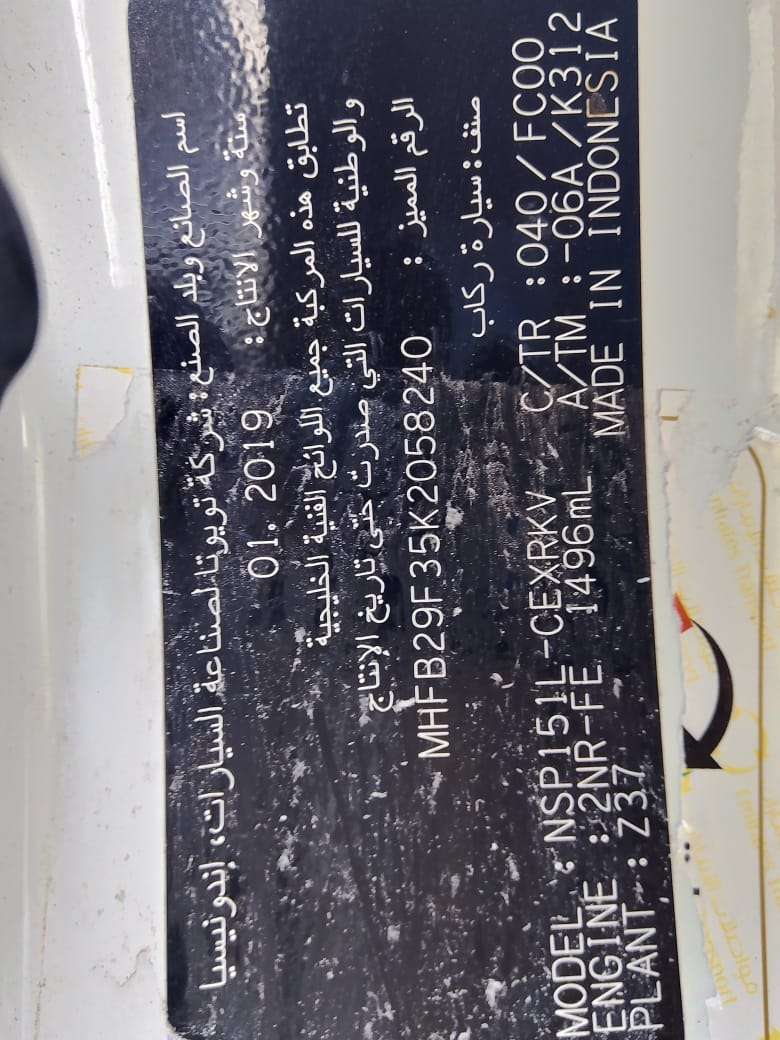 اسم الصانع وبلد الصنع: شركة تويوتا لصناعة السيارات، إندونيسيا
سنة وشهر الانتاج: 01. 2019
تطابق هذه المركبة جميع اللوائح الفنية الخليجية
والوطنية للسيارات التي صدرت حتى تاريخ الإنتاج
الرقم المميز : MHFB29F35K2058240
صنف: سيارة ركاب
MODEL : NSP151L-CEXRKV C/TR :040/FC00
ENGINE :2NR-FE 1496mL A/TM :-06A/K312
PLANT : Z37 MADE IN INDONESIA